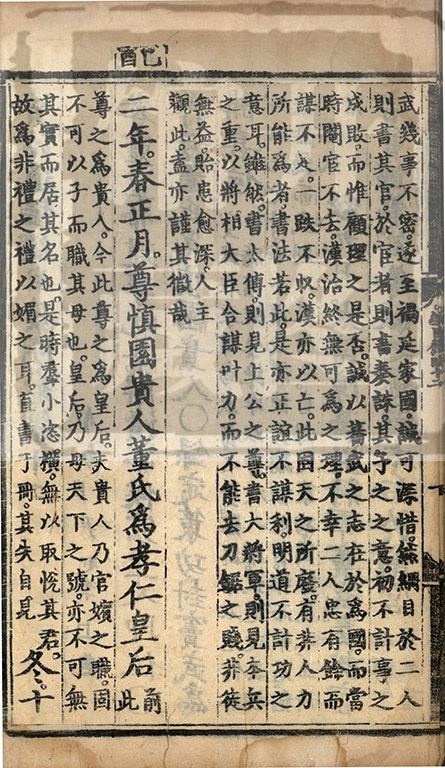 己酉
武幾事不密。遂至禍延家國。誠可深惜。然綱目於二人
則書其官。於宦者則書奏誅。其予之之意。初不計事之
成敗。而惟顧理之是否。誠以蕃武之志在於爲國。而當
時閹宦不去。漢治終無可爲之理。不幸二人忠有餘而
謀不足。一跌不収。漢亦以亡。此固天之所廢。有非人力
所能爲者。書法若此。是亦正誼不謀利。明道不計功之
意耳。雖然。書太傅。則見上公之尊。書大將軍。則見本兵
之重。以將相大臣合謀叶力。而不能去刀鋸之賤。非徒
無益。貽患愈深。人主
觀此。盍亦謹其微哉
二年。春正月。尊慎園貴人董氏爲孝仁皇后
前此
尊之爲貴人。今此尊之爲皇后。夫貴人乃官嬪之職。固
不可以子而職其母也。皇后。乃母天下之號。亦不可無
其實而居其名也。是時羣小恣橫。無以取悅其君。
故爲非禮之禮以媚之耳。直書于冊。其失自見
冬。十